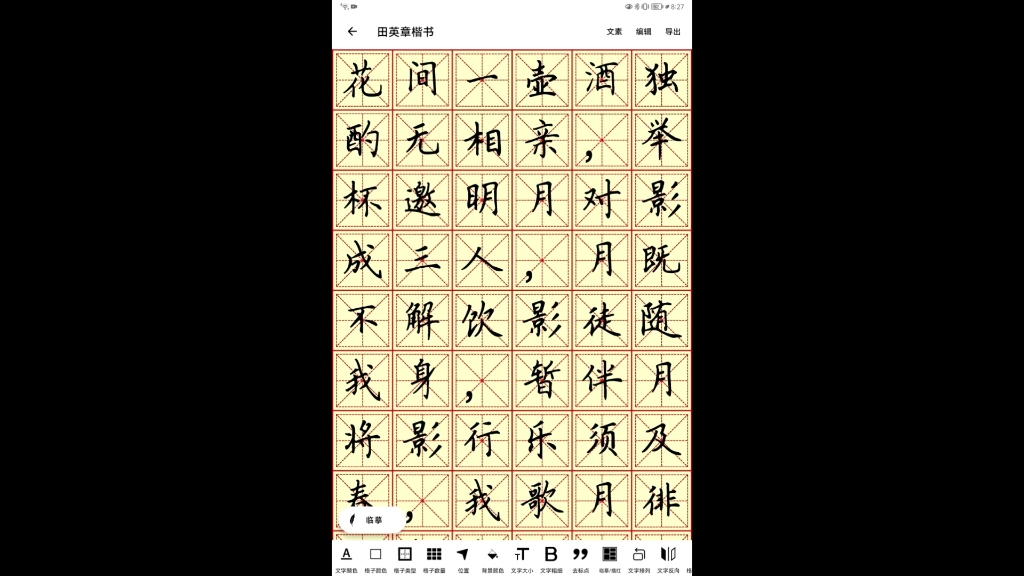 8:27
田英章楷书
文素 编辑 导出
花间一壶酒独
酌无相亲，举
杯邀明月对影
成三人，月既
不解饮影徒随
我身，暂伴月
将影行乐须及
春，我歌月徘
临摹
文字颜色 格子颜色 格子类型 格子数量 位置 背景颜色 文字大小 文字粗细 去标点 临摹/描红 文字排列 文字反向 格